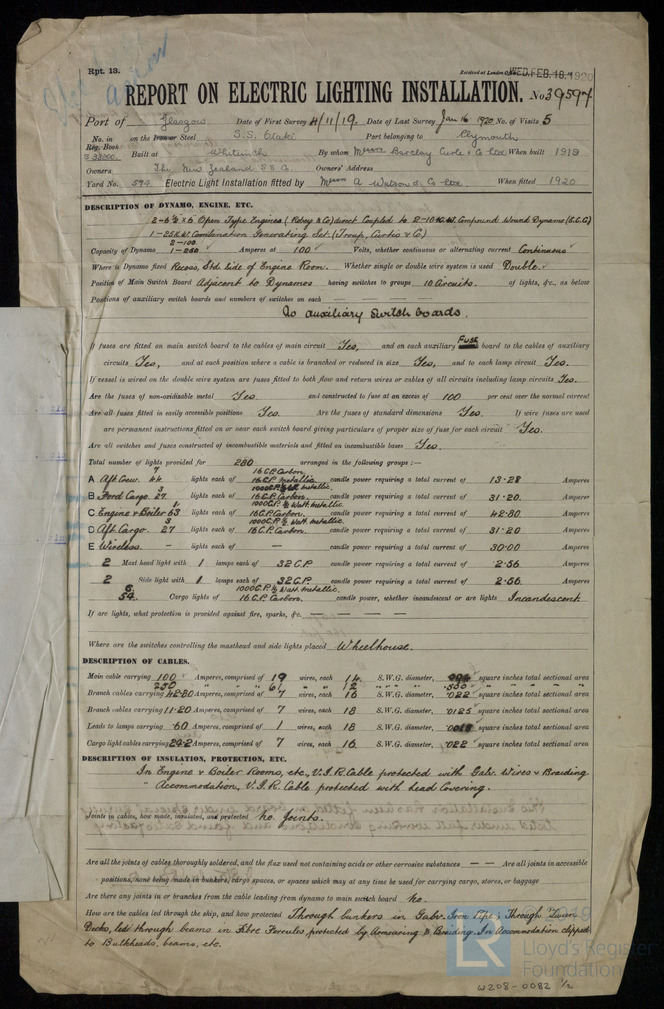 Rpt. 13.
Received at London Office WED. FEB. 18. 1920
REPORT ON ELECTRIC LIGHTING INSTALLATION. No 39597
Port of Glasgow Date of First Survey 4/11/19 Date of Last Survey Jan 16 1920 No. of Visits 5
No. in Reg. Book on the Iron or Steel S.S. Otaki Port belonging to Plymouth
Built at Whiteinch By whom Messrs Barclay Curle & Co Ltd When built 1919
Owners The New Zealand S.S. Co. Owners' Address
Yard No. 574 Electric Light Installation fitted by Messrs A Watson & Co Ltd. When fitted 1920
DESCRIPTION OF DYNAMO, ENGINE, ETC.
2-6½ x 6 Open Type Engines (Robey & Co) direct Coupled to 2-10 K.W. Compound Wound Dynamo (E.C.C)
1-25 K.W. Combination Generating Set. (Troup, Curtis & Co)
Capacity of Dynamo 2-100 1-250 Amperes at 100 Volts, whether continuous or alternating current Continuous
Where is Dynamo fixed Recess, Std. Side of Engine Room. Whether single or double wire system is used Double.
Position of Main Switch Board Adjacent to Dynamos having switches to groups 10 Circuits. of lights, &c., as below
Positions of auxiliary switch boards and numbers of switches on each
No auxiliary switch boards.
If fuses are fitted on main switch board to the cables of main circuit Yes, and on each auxiliary Fuse board to the cables of auxiliary
circuits Yes, and at each position where a cable is branched or reduced in size Yes, and to each lamp circuit Yes.
If vessel is wired on the double wire system are fuses fitted to both flow and return wires or cables of all circuits including lamp circuits Yes.
Are the fuses of non-oxidizable metal Yes and constructed to fuse at an excess of 100 per cent over the normal current
Are all fuses fitted in easily accessible positions Yes. Are the fuses of standard dimensions Yes. If wire fuses are used
are permanent instructions fitted on or near each switch board giving particulars of proper size of fuse for each circuit Yes.
Are all switches and fuses constructed of incombustible materials and fitted on incombustible bases Yes.
Total number of lights provided for 280 arranged in the following groups :—
A Aft. Crew. 7 44 lights each of 16 C.P. Carbon. 16 C.P. Metallic candle power requiring a total current of 13.28 Amperes
B Ford Cargo. 3 27 lights each of 1000 C.P. ½ Watt Metallic. 16 C.P. Carbon. candle power requiring a total current of 31.20 Amperes
C Engine & Boiler 1 63 lights each of 1000 C.P. ½ Watt Metallic. 16 C.P. Carbon. candle power requiring a total current of 42.80 Amperes
D Aft. Cargo. 3 27 lights each of 1000 C.P. ½ Watt Metallic. 16 C.P. Carbon. candle power requiring a total current of 31.20 Amperes
E Wireless. — lights each of — candle power requiring a total current of 30.00 Amperes
2 Mast head light with 1 lamps each of 32 C.P. candle power requiring a total current of 2.56 Amperes
2 Side light with 1 lamps each of 32 C.P. candle power requiring a total current of 2.56 Amperes
6. 54. Cargo lights of 1000 C.P. ½ Watt Metallic. 16 C.P. Carbon. candle power, whether incandescent or arc lights Incandescent.
If arc lights, what protection is provided against fire, sparks, &c. — — — —
Where are the switches controlling the masthead and side lights placed Wheelhouse.
DESCRIPTION OF CABLES.
Main cable carrying 100 Amperes, comprised of 19 wires, each 14 S.W.G. diameter, square inches total sectional area
250 " " " 61 " " 12 " " " .500 " " " "
Branch cables carrying 42.80 Amperes, comprised of 7 wires, each 16 S.W.G. diameter, .022 square inches total sectional area
Branch cables carrying 11.20 Amperes, comprised of 7 wires, each 18 S.W.G. diameter, .0125 square inches total sectional area
Leads to lamps carrying .60 Amperes, comprised of 1 wires, each 18 S.W.G. diameter, .0018 square inches total sectional area
Cargo light cables carrying 24.2 Amperes, comprised of 7 wires, each 16 S.W.G. diameter, .022 square inches total sectional area
DESCRIPTION OF INSULATION, PROTECTION, ETC.
In Engine & Boiler Rooms, etc., V.I.R. Cable protected with Galv. Wires & Braiding
" Accommodation, V.I.R. Cable protected with Lead Covering.
Joints in cables, how made, insulated, and protected No Joints.
Are all the joints of cables thoroughly soldered, and the flux used not containing acids or other corrosive substances — — Are all joints in accessible
positions, none being made in bunkers, cargo spaces, or spaces which may at any time be used for carrying cargo, stores, or baggage
Are there any joints in or branches from the cable leading from dynamo to main switch board No.
How are the cables led through the ship, and how protected Through bunkers in Galv. Iron Pipe; Through Tween
Decks, led through beams in Fibre Ferrules, protected by Armouring & Braiding. In Accommodation clipped
to Bulkheads, beams, etc.
© 2019
LR
Lloyd's Register
Foundation
W208-0082 1/2